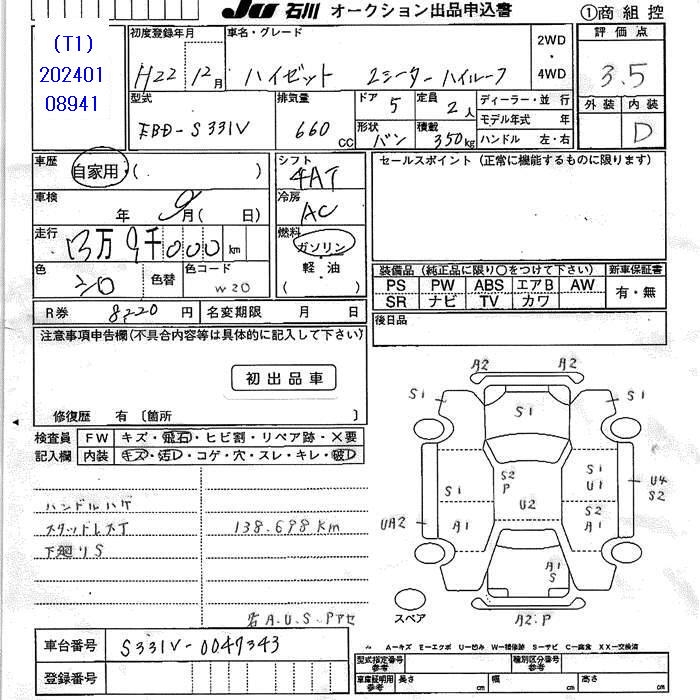 JU 石川 オークション出品申込書 ①商 組 控
(T1)
202401
08941
初度登録年月 車名・グレード 2WD・4WD 評価点
H22年 12月 ハイゼット 2シーター ハイルーフ 3.5
外装 内装
D
型式 排気量 ドア 5 定員 2人 ディーラー・並 行
モデル年式 年
EBD-S331V 660cc 形状 バン 積載 350kg ハンドル 左・右
車歴 自家用・( ) シフト セールスポイント(正常に機能するものに限ります)
4AT
車検 年 月( 日) 冷房
AC
走行 13万9千000km 燃料
ガソリン
軽・油
( )
色 色替 色コード
シロ W20
装備品(純正品に限り○をつけて下さい) 新車保証書
PS PW ABS エアB AW 有・無
SR ナビ TV カワ
R券 8220円 名変期限 月 日
後日品
注意事項申告欄(不具合内容等は具体的に記入して下さい)
初出品車
修復歴 有〔箇所 〕
検査員 FW キズ・飛石・ヒビ割・リペア跡・×要
記入欄 内装 キズ・汚D・コゲ・穴・スレ・キレ・破D
ハンドルハゲ
スタッドレスT 138.698km
下廻りS
各A.U.S.Pアセ
A2
S1 S1 S1
S2
P
S1 S1
U1
U4
S2
U2
UA2 A1 S2
A1
A1
S
スペア A2.P
A-キズ E-エクボ U-凹み W-補修跡 S-サビ C-腐食 XX-交換済
車台番号 S331V-0047343
登録番号
型式指定番号 参考 種別区分番号 参考
車庫証明用 参考 長さ cm 幅 cm 高さ cm